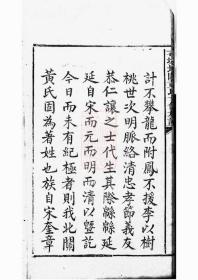 計不攀龍而附鳳不援李以樹
桃世次明脈絡清忠孝節義友
恭仁讓之士代生其際緜緜延
延自宋而元而明而清以暨訖
今日而未有紀極者則我北關
黃氏固為著姓也族自宋奎章